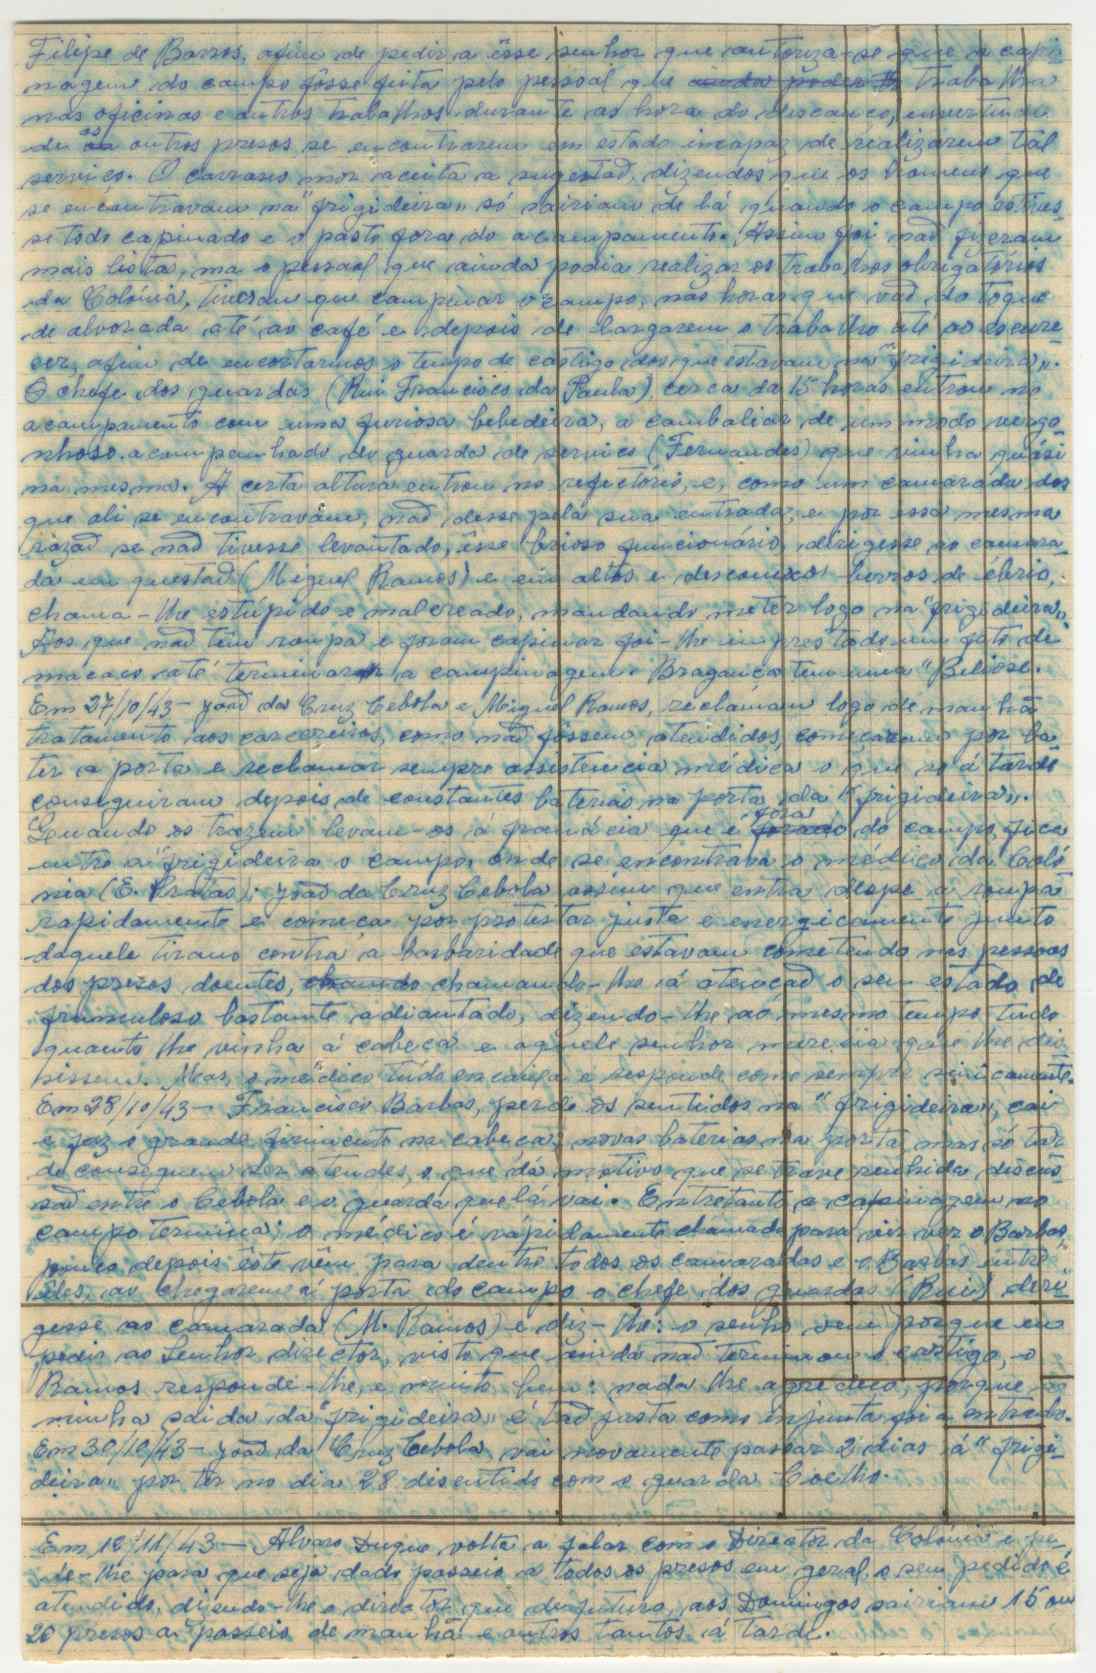 Filipe de Barros, afim de pedir a êsse senhor que autoriza-se que a capi-
nagem do campo fôsse feita pelo pessoal que trabalham
nas oficinas e outros trabalhos durante as hora do descanço,
de os outros presos se encontrarem em estado incapaz de realizarem tal
serviço. O carrasco mor aceita a sugestaõ, dizendos que os homens que
se encontravam na "frigideira" só sairiam de lá quando o campo estives-
se todo capinado e o pasto fora do acampamento. Assim foi naõ fizeram
mais lista, ma o pessoal que ainda podia realizar os trabalhos obrigatórios
da Colónia, tiveram que campinar o campo, nas horas que vaõ do toque
de alvorada até ao café e depois de largarem o trabalho até ao escure-
cer, afim de encortarmos o tempo de castigo dos que estavam na "frigideira".
O chefe dos guardas (Rui Francisco da Paula) cerca da 15 horas entrou no
acampamento com uma furiosa bebedeira, a cambaliar de um modo vergo-
nhoso acompanhado do guarda de serviço (Fernandes) que vinha quási
na mesma. A certa altura entrou no refeitório, e, como um camarada dos
que ali se encontravam, naõ desse pela sua entrada, e por essa mesma
razaõ se naõ tivesse levantado, êsse brioso funcionário, dirigesse ao camara-
da em questaõ (Miguel Ramos) e em altos e desconexos berros de ébrio,
chama-lhe estúpido e malcreado, mandando meter logo na "frigideira".
Aos que naõ têm roupa e foram capinar foi-lhe imprestado um fato de
macaco até terminar a campinagem. Bragança tem uma "Biliose.
Em 27/10/43 - Joaõ da Cruz Cebola e Miguel Ramos, reclamam logo de manhã
tratamento aos carcereiros, como naõ fôssem atendidos, começaram por ba-
ter a porta e reclamar sempre assistencia médica o que só á tarde
conseguiram depois de constantes baterias na porta da "frigideira".
Quando os trazem levam-os á framácia que é fora do campo, fica
entre a "frigideira o campo, onde se encontrava o médico da Coló-
nia (E. Pratas). Joaõ da Cruz Cebola assim que entra despe a roupa
rapidamente e começa por protestar justa e energicamente junto
daquele tirano contra a barbaridade que estavam cometendo nas pessoas
dos presos doentes, chamando-lhe á atençaõ o seu estado de
frunculoso bastante adiantado, dizendo-lhe ao mesmo tempo tudo
quanto lhe vinha á cabeça e aquele senhor merecia que lhe dis-
sissem. Mas, o médico tudo encaixa e responde como sempre sinicamente.
Em 28/10/43 - Francisco Barbas, perde os sentidos na "frigideira", cai
e faz o grande firimento na cabeça, novas baterias na porta, mas só tar-
de conseguem ser atendes, o que dá motivo que se trave renhida discus-
saõ entre o Cebola e o guarda que lá vai. Entretanto a capinagem no
campo termina; o médico é rápidamente chamado para vir ver o Barbas,
pouco depois êste vêm para dentre todos os camaradas e o Barbas entre
êles, ao chegarem á porta do campo o chefe dos guardas (Rui) deri-
gesse ao camarada (M. Ramos) e diz-lhe: o senho vem porque eu
pedir ao Senhor director, visto que ainda naõ terminou o castigo, o
Ramos responde-lhe, e muito bem: nada lhe agredeço, porque a
minha saida da "frigideira" é taõ justa como injusta foi a entrada.
Em 30/10/43 - Joaõ da Cruz Cebola vai novamente passar 2 dias á "frigi-
deira" por ter no dia 28 discutido com o guarda Coelho.
Em 12/11/43 - Alvaro Duque volta a falar com o Director da Colónia e pe-
de-lhe para que seja dado passeio a todos os presos em geral, o seu pedido é
atendido, dizendo-lhe o director que de futuro, aos Domingos sairiam 15 ou
20 presos a passeio de manhã e outros tantos á tarde.